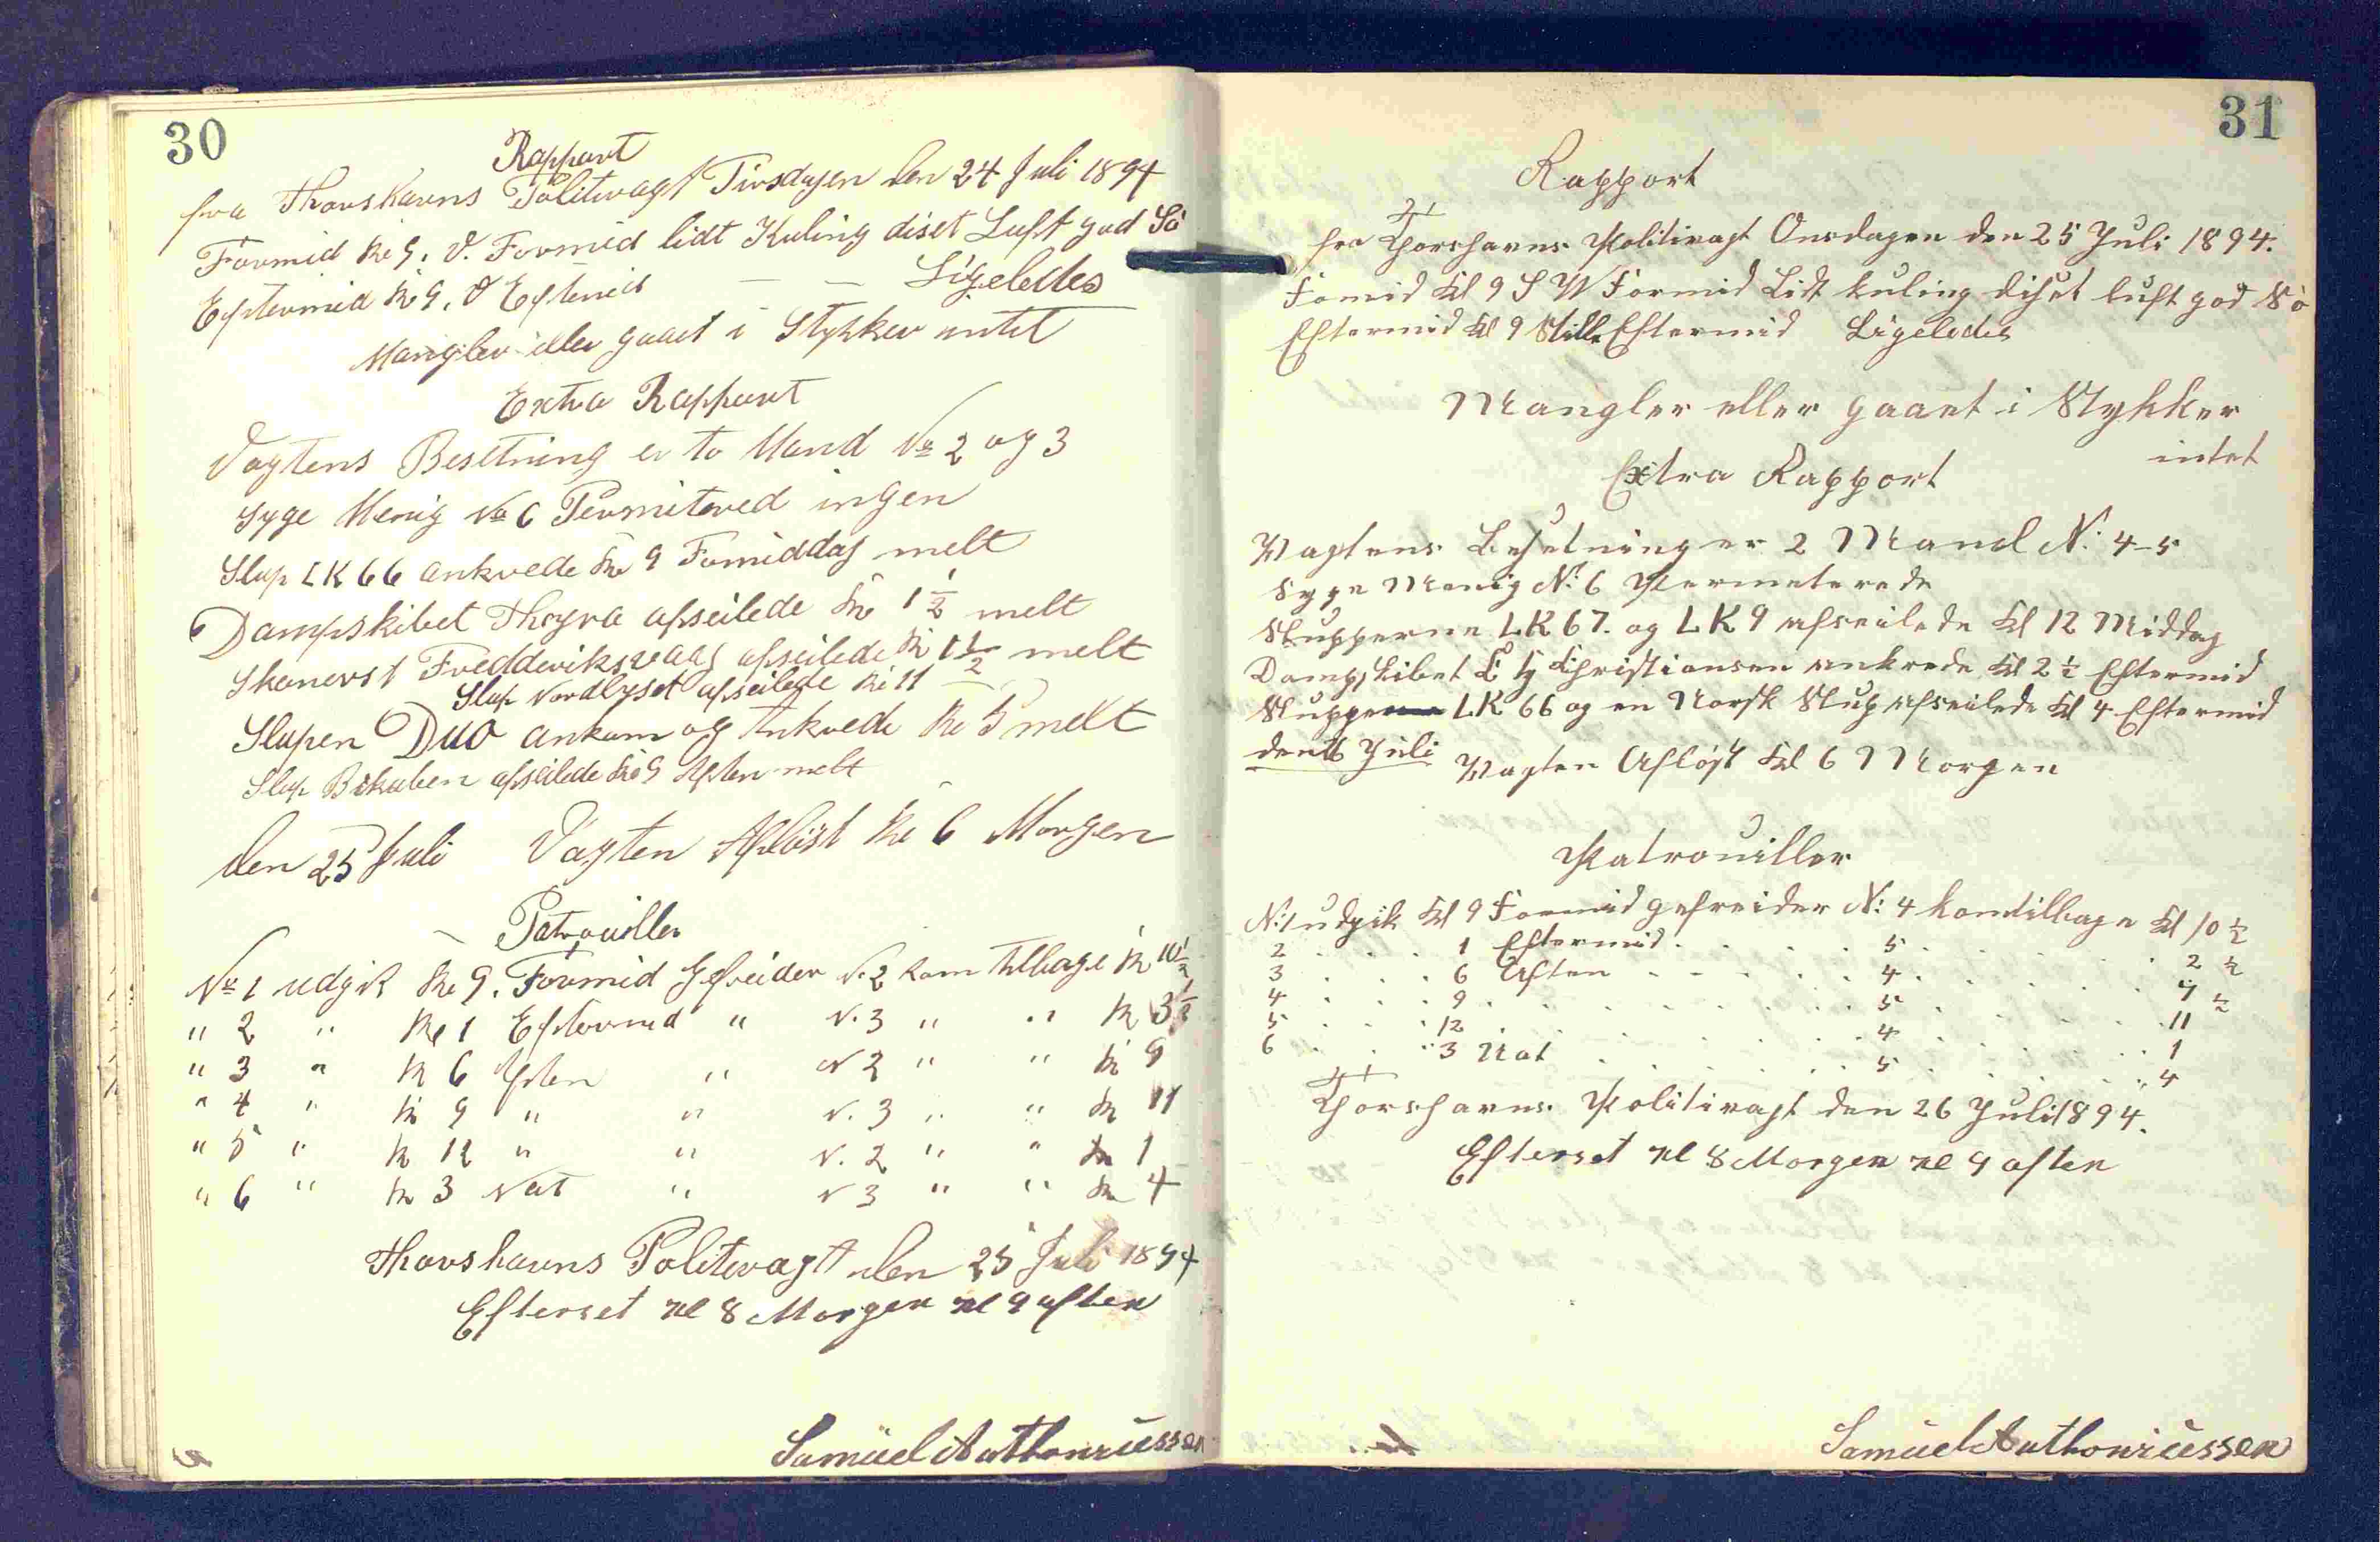 30
Rapport
fra Thorshavns Politivagt Tirsdagen den 24 Juli 1894
Formid Kl 9. V. Formid lidt Kuling diset Luft god Sö
Eftermid Kl 9. V Eftemid — — Ligeledes
Mangler eller gaaet i Stykker intet
Extra Rapport
Vagtens Besetning er to Mand No 2 og 3
Syge Menig No 6 Permitered ingen
Slup LK 66 ankrede Kl 9 Formiddag melt
Dampskibet Thyra afseilede Kl 1 1/2 melt
Skonerst Fredderiksvaag afseilede Kl 1 1/2 melt
Slup Nordlyset afseilede Kl 11
Slupen Duo ankom og Ankrede Kl 5 melt
Slup Bikuben afseilede Kl 9 Aften melt
den 25 Juli Vagten Aflöst Kl 6 Morgen
Patrouiller
No 1 udgik Kl 9. Formid Gefreider N. 2 kom tilbage Kl 10 1/2
" 2 " Kl 1 Eftermid " N. 3 " " Kl 3 1/2
" 3 " Kl 6 Aften " N 2 " " Kl 9
" 4 " Kl 9 " " N. 3 " " Kl 11
" 5 " Kl 12 " " N. 2 " " Kl 1
" 6 " Kl 3 Nat " N 3 " " Kl 4
Thorshavns Politivagt den 25 Juli 1894
Efterset Kl 8 Morgen Kl 9 aften
Samüel Anthoniussen
31
Rapport
fra Thorshavns Politivagt Onsdagen den 25 Juli 1894.
Fomid Kl 9 S W Formid Lidt kuling diset luft god Sö
Eftermid Kl 9 Stille Eftermid Ligeledes
Mangler eller gaaet i Stykker
intet
Extra Rapport
Vagtens Besetning er 2 Mand N: 4-5
Syge Menig N: 6 Permeterede
Slupperne LK 67. og LK 9 afseilede Kl 12 Middag
Dampskibet Christiansen ankrede Kl 2 1/2 Eftermid
Sluppe LK 66 og en Norsk Slup afseilede Kl 4 Eftermid
den 26 Juli Vagten Aflöst Kl 6 Morgen
Patrouiller
N: 1 udgik Kl 9 Formid gefreider N: 4 kom tilbage Kl 10 1/2
2 . . . 1 Eftermid . . . . 5 . . . . 2 1/2
3 . . . 6 Aften . . . . 4 . . . . 7 1/2
4 . . . 9 . . . . . 5 . . . . 11
5 . . . 12 . . . . . 4 . . . . 1
6 . . . 3 Nat . . . . 5 . . . . 4
Thorshavns Politivagt den 26 Juli 1894.
Efterset Kl 8 Morgen Kl 9 aften
Samüel Anthoniüssen